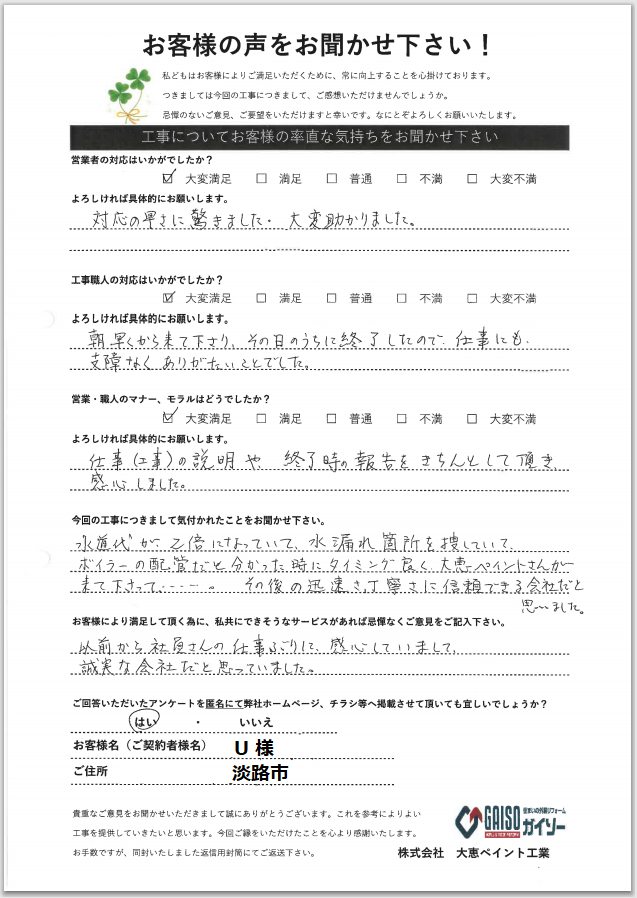 お客様の声をお聞かせ下さい！
私どもはお客様によりご満足いただくために、常に向上することを心掛けております。
つきましては今回の工事につきまして、ご感想いただけませんでしょうか。
忌憚のないご意見、ご要望をいただけますと幸いです。なにとぞよろしくお願いいたします。
工事についてお客様の率直な気持ちをお聞かせ下さい
営業者の対応はいかがでしたか？
☑ 大変満足 □ 満足 □ 普通 □ 不満 □ 大変不満
よろしければ具体的にお願いします。
対応の早さに驚きました・ 大変助かりました。
工事職人の対応はいかがでしたか？
☑ 大変満足 □ 満足 □ 普通 □ 不満 □ 大変不満
よろしければ具体的にお願いします。
朝早くから来て下さり、その日のうちに終了したので、仕事にも、
支障なくありがたいことでした。
営業・職人のマナー、モラルはどうでしたか？
☑ 大変満足 □ 満足 □ 普通 □ 不満 □ 大変不満
よろしければ具体的にお願いします。
仕事（工事）の説明や、終了時の報告をきちんとして頂き
感心しました。
今回の工事につきまして気付かれたことをお聞かせ下さい。
水道代が、2倍になっていて、水漏れ箇所を捜していて、
ボイラーの配管だと分かった時にタイミング良く、大恵ペイントさんが
来て下さって-----。その後の迅速さ丁寧さに信頼できる会社だと
思いました。
お客様により満足して頂く為に、私共にできそうなサービスがあれば忌憚なくご意見をご記入下さい。
以前から社員さんの仕事ぶりに、感心していまして、
誠実な会社だと思っていました。
ご回答いただいたアンケートを匿名にて弊社ホームページ、チラシ等へ掲載させて頂いても宜しいでしょうか？
はい ・ いいえ
お客様名（ご契約者様名） U 様
ご住所 淡路市
貴重なご意見をお聞かせいただきまして誠にありがとうございます。これを参考によりよい
工事を提供していきたいと思います。今回ご縁をいただけたことを心より感謝いたします。
お手数ですが、同封いたしました返信用封筒にてご返送下さい。
GAISO 住まいの外装リフォーム ガイソー
株式会社 大恵ペイント工業